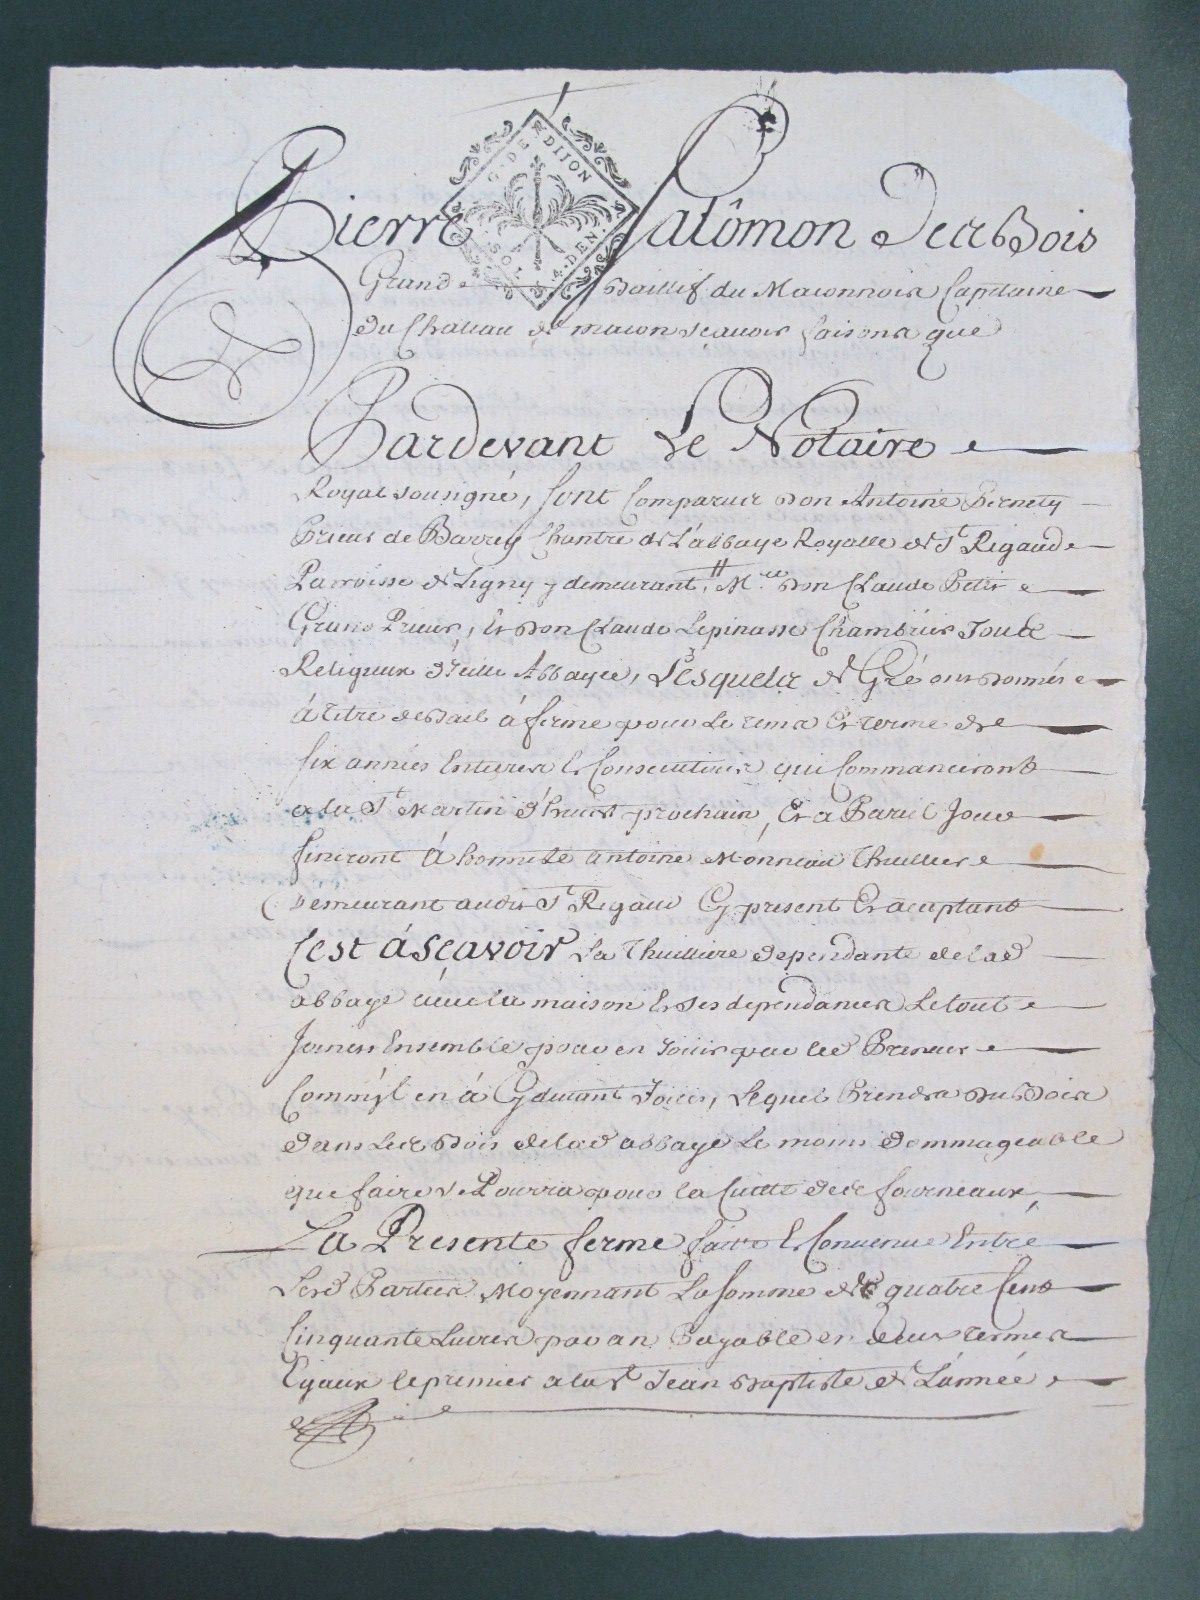 G. DE DIJON
SOL 4. DEN.
Pierre Salômon Desbois
Grand Baillif du Maconnois Capitaine
du Chateau de macon sçavoir faisons que
Pardevant Le Notaire
Royal sousigné, sont Comparus Don Antoine Pernety
Prieur de Barrey Chantre de L'abbaye Royalle de St Rigaud
Parroisse de Ligny y demeurant, Don Claude Petit
Grand Prieur, Et Don Claude Lepinasse Chambrier Tout
Religieux d'icelle Abbaÿe, Lesquels de Gré ont donnés
á titre de Bail á ferme pour Le tems Et terme de
six années Entieres Et Consecutives qui Commanceront
a la St Martin d'hivert prochain, Et a Pareil Jour
finiront á honnete antoine Monneau Thuillier
Demeurant audit St Rigaud Cy present Et aceptant
C'est áscavoir La Thuilliere dependante de lad
abbaye avec la maison Et ses dependances Le tout
Joinct Ensemble pour en Joüir par led Preneur
Comm'jl en á Cy devant Joüis, Lequel Prendra Du Bois
Dans Les Bois de lad abbaye Le moins Dommageable
que faire se Pourra pour la Cuitte de ses fourneaux
La Presente ferme faitte Et Convenue Entre
Lesd Parties Moyennant La somme de quatre Cent
Cinquante Livres par an Payable en deux termes
Egaux le premier a la St Jean Baptiste de L'année